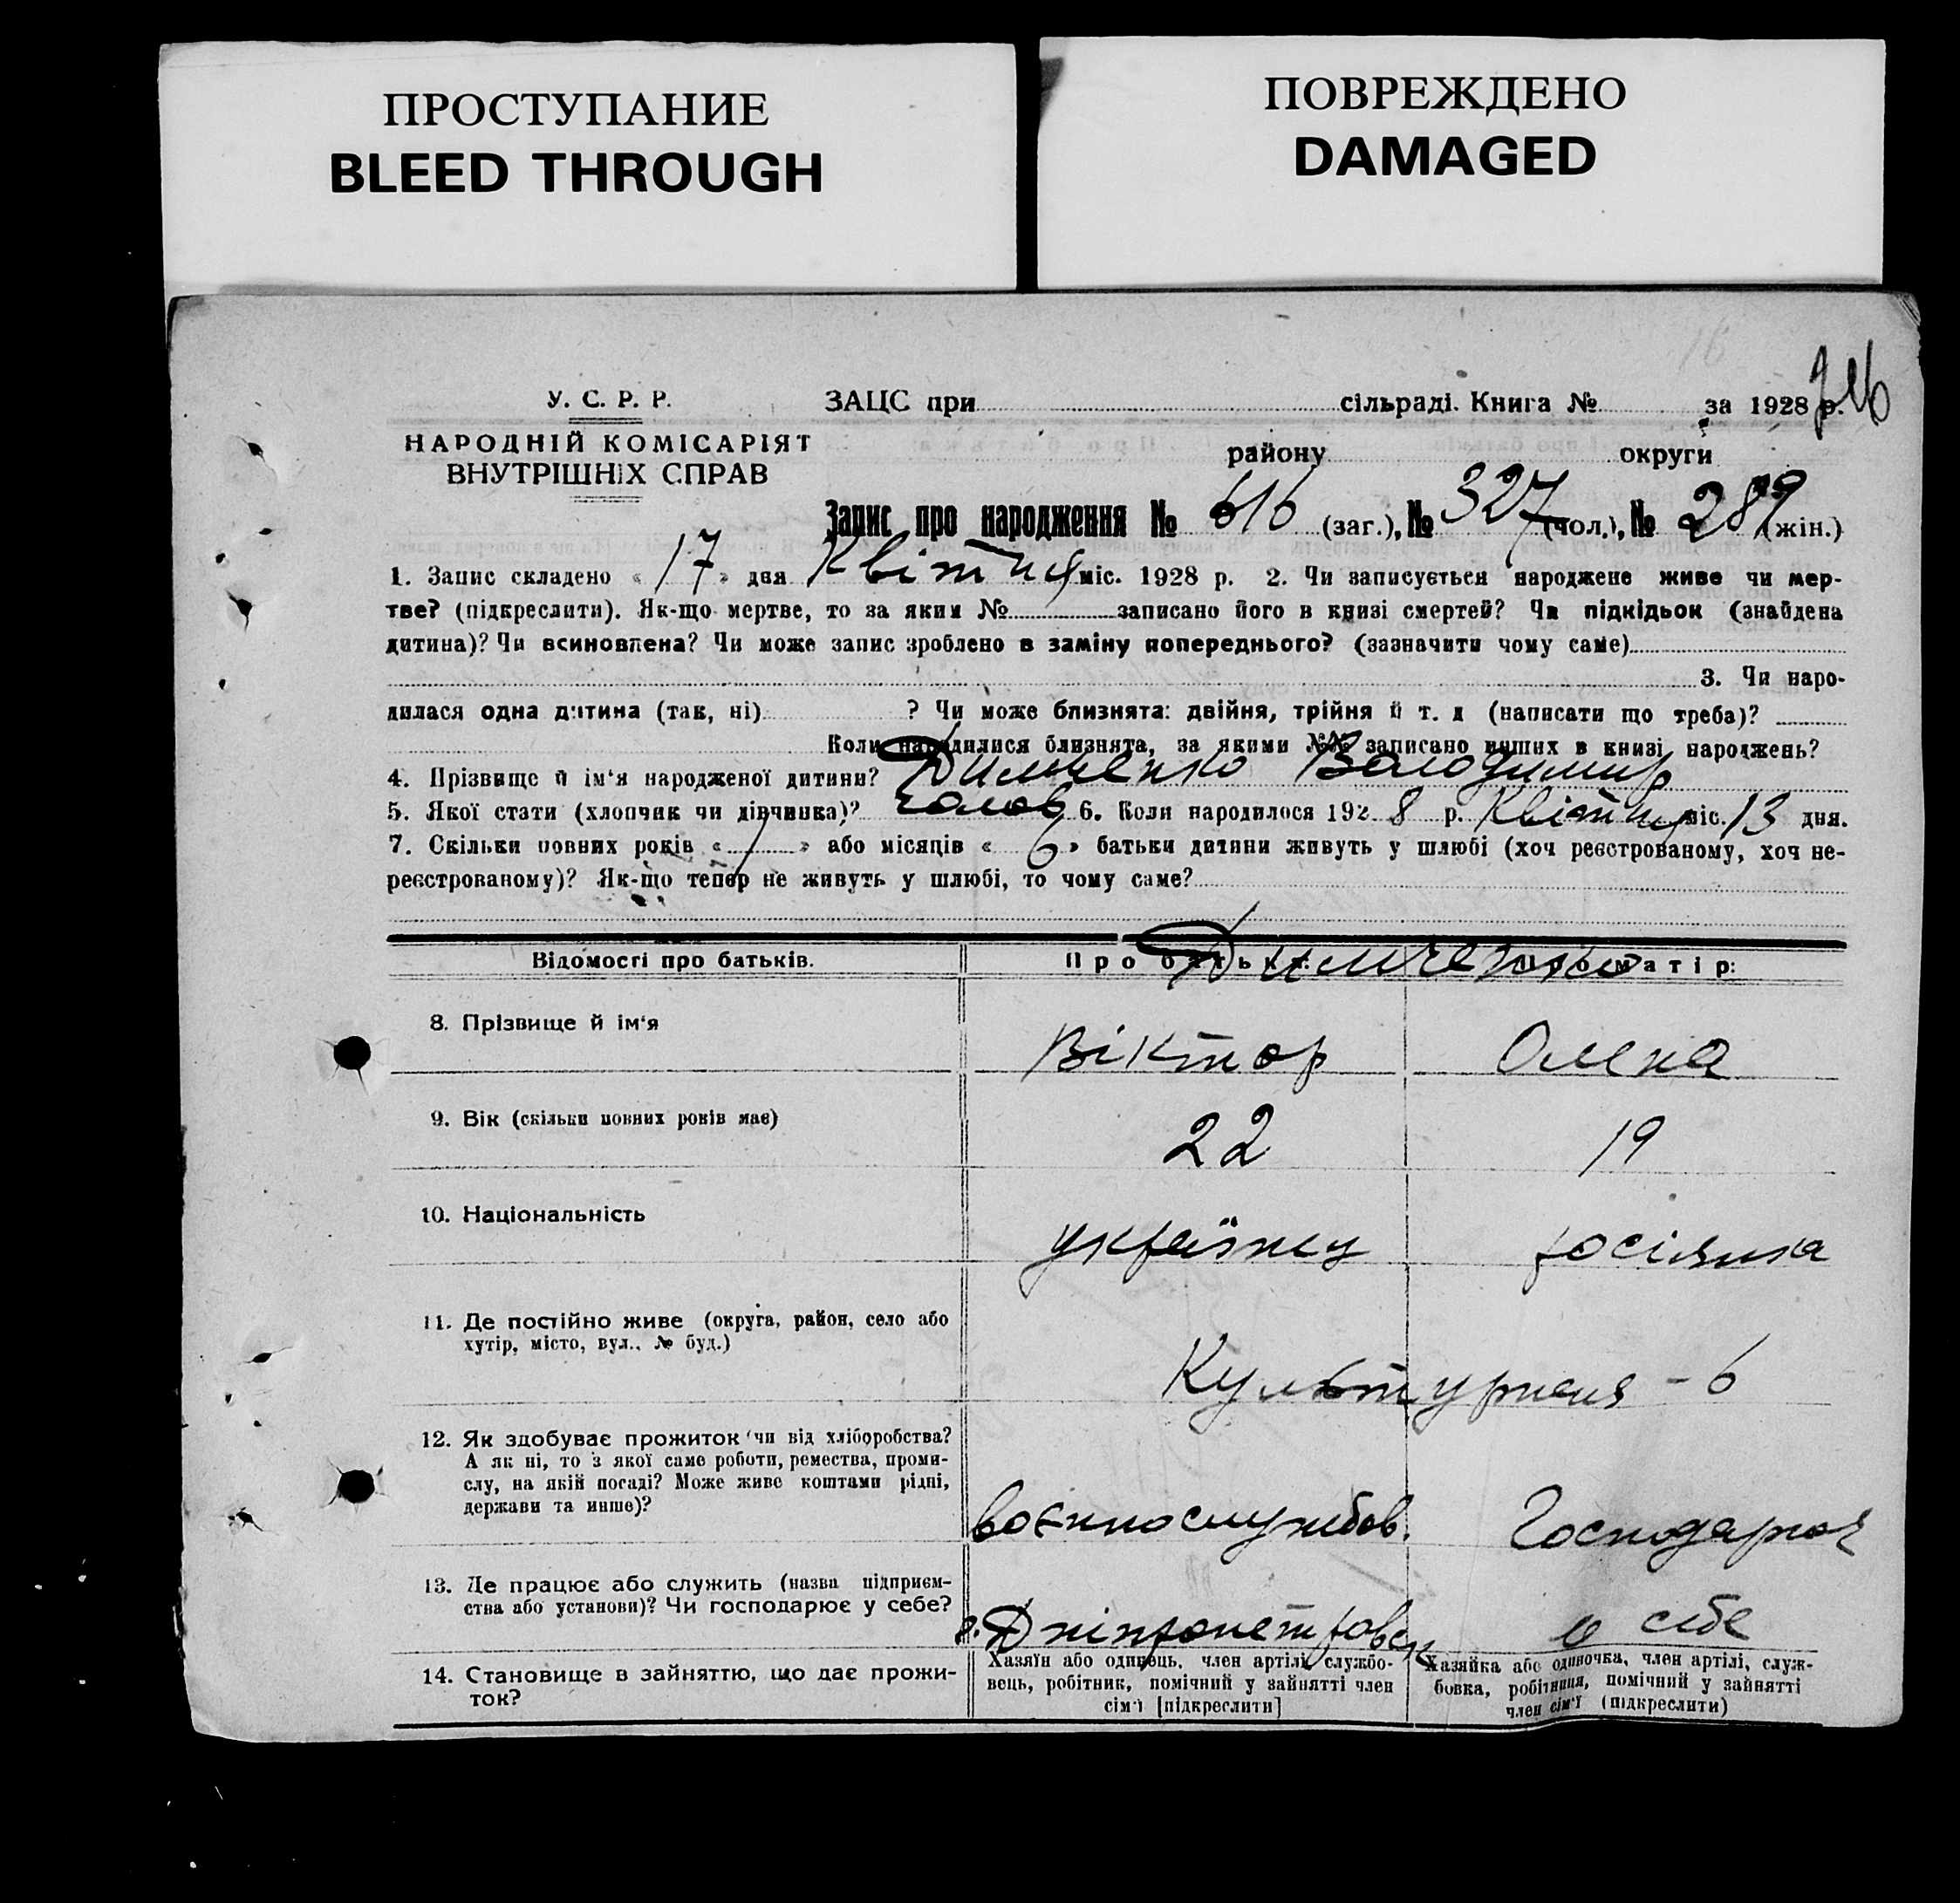 ПРОСТУПАНИЕ
BLEED THROUGH
ПОВРЕЖДЕНО
DAMAGED
У. С. Р. Р.
НАРОДНІЙ КОМІСАРІЯТ
ВНУТРІШНІХ СПРАВ
ЗАЦС при сільраді. Книга № за 1928 р.
району округи
Запис про народження № 616 (заг.), № 327 (чол.), № 289 (жін.)
1. Запис складено « 17 » дня Квітня міс. 1928 р. 2. Чи записується народжене живе чи мер-
тве? (підкреслити). Як-що мертве, то за яким № записано його в книзі смертей? Чи підкідьок (знайдена
дитина)? Чи всиновлена? Чи може запис зроблено в заміну попереднього? (зазначити чому саме)
3. Чи наро-
дилася одна дитина (так, ні) ? Чи може близнята: двійня, трійня й т. д (написати що треба)?
Коли народилися близнята, за якими №№ записано инших в книзі народжень?
4. Прізвище й ім‘я народженої дитини? Димченко Володимир
5. Якої стати (хлопчик чи дівчинка)? чолов 6. Коли народилось 1928 р. Квітня міс. 13 дня.
7. Скільки повних років « 1 » або місяців « 6 » батьки дитини живуть у шлюбі (хоч реєстрованому, хоч не-
реєстрованому)? Як-що тепер не живуть у шлюбі, то чому саме?
Відомості про батьків. Про батька: Димченко Про матір:
8. Прізвище й ім‘я Віктор Олена
9. Вік (скільки повних років має) 22 19
10. Національність українец росіянка
11. Де постійно живе (округа, район, село або
хутір, місто, вул., № буд.) Культурная - 6
12. Як здобуває прожиток чи від хліборобства?
А як ні, то з якої саме роботи, ремества, проми-
слу, на якій посаді? Може живе коштами рідні,
держави та инше)? воєннослужбов. Господарює
13. Де працює або служить (назва підприєм-
ства або установи)? Чи господарює у себе? г. Дніпропетровск у себе
14. Становище в зайняттю, що дає прожи-
ток?
Хазяїн або одинець, член артілі, службо-
вець, робітник, помічний у зайнятті член
сім‘ї [підкреслити]
Хазяйка або одиночка, член артілі, служ-
бовка, робітниця, помічний у зайнятті
член сім‘ї (підкреслити)